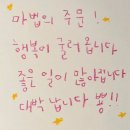 마법의 주문!
행복이 굴러옵니다
좋은일이 많아집니다
대박납니다 뿅!!